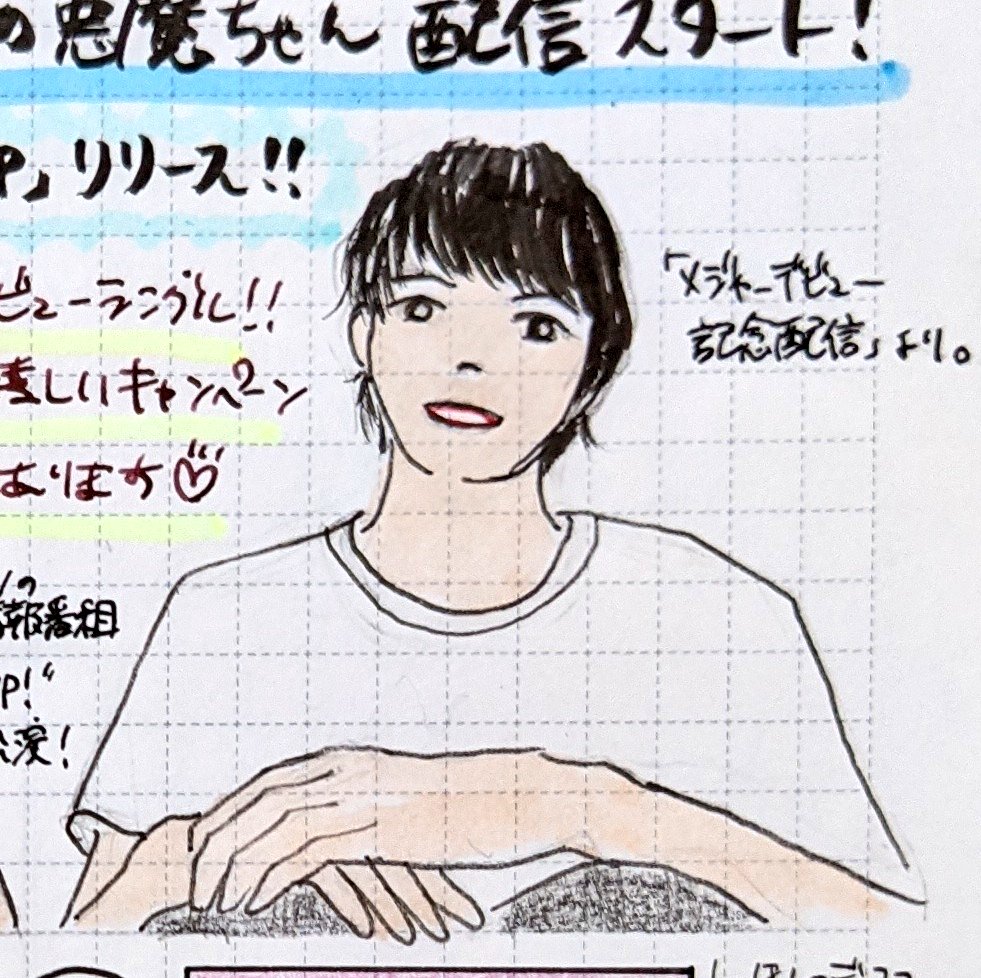 の悪魔ちゃん 配信スタート!
P」リリース!!
ビューランブル!!
「メジャーデビュー
記念配信」より。
嬉しいキャンペーン
あります♡
の
報番組
P!"
演!